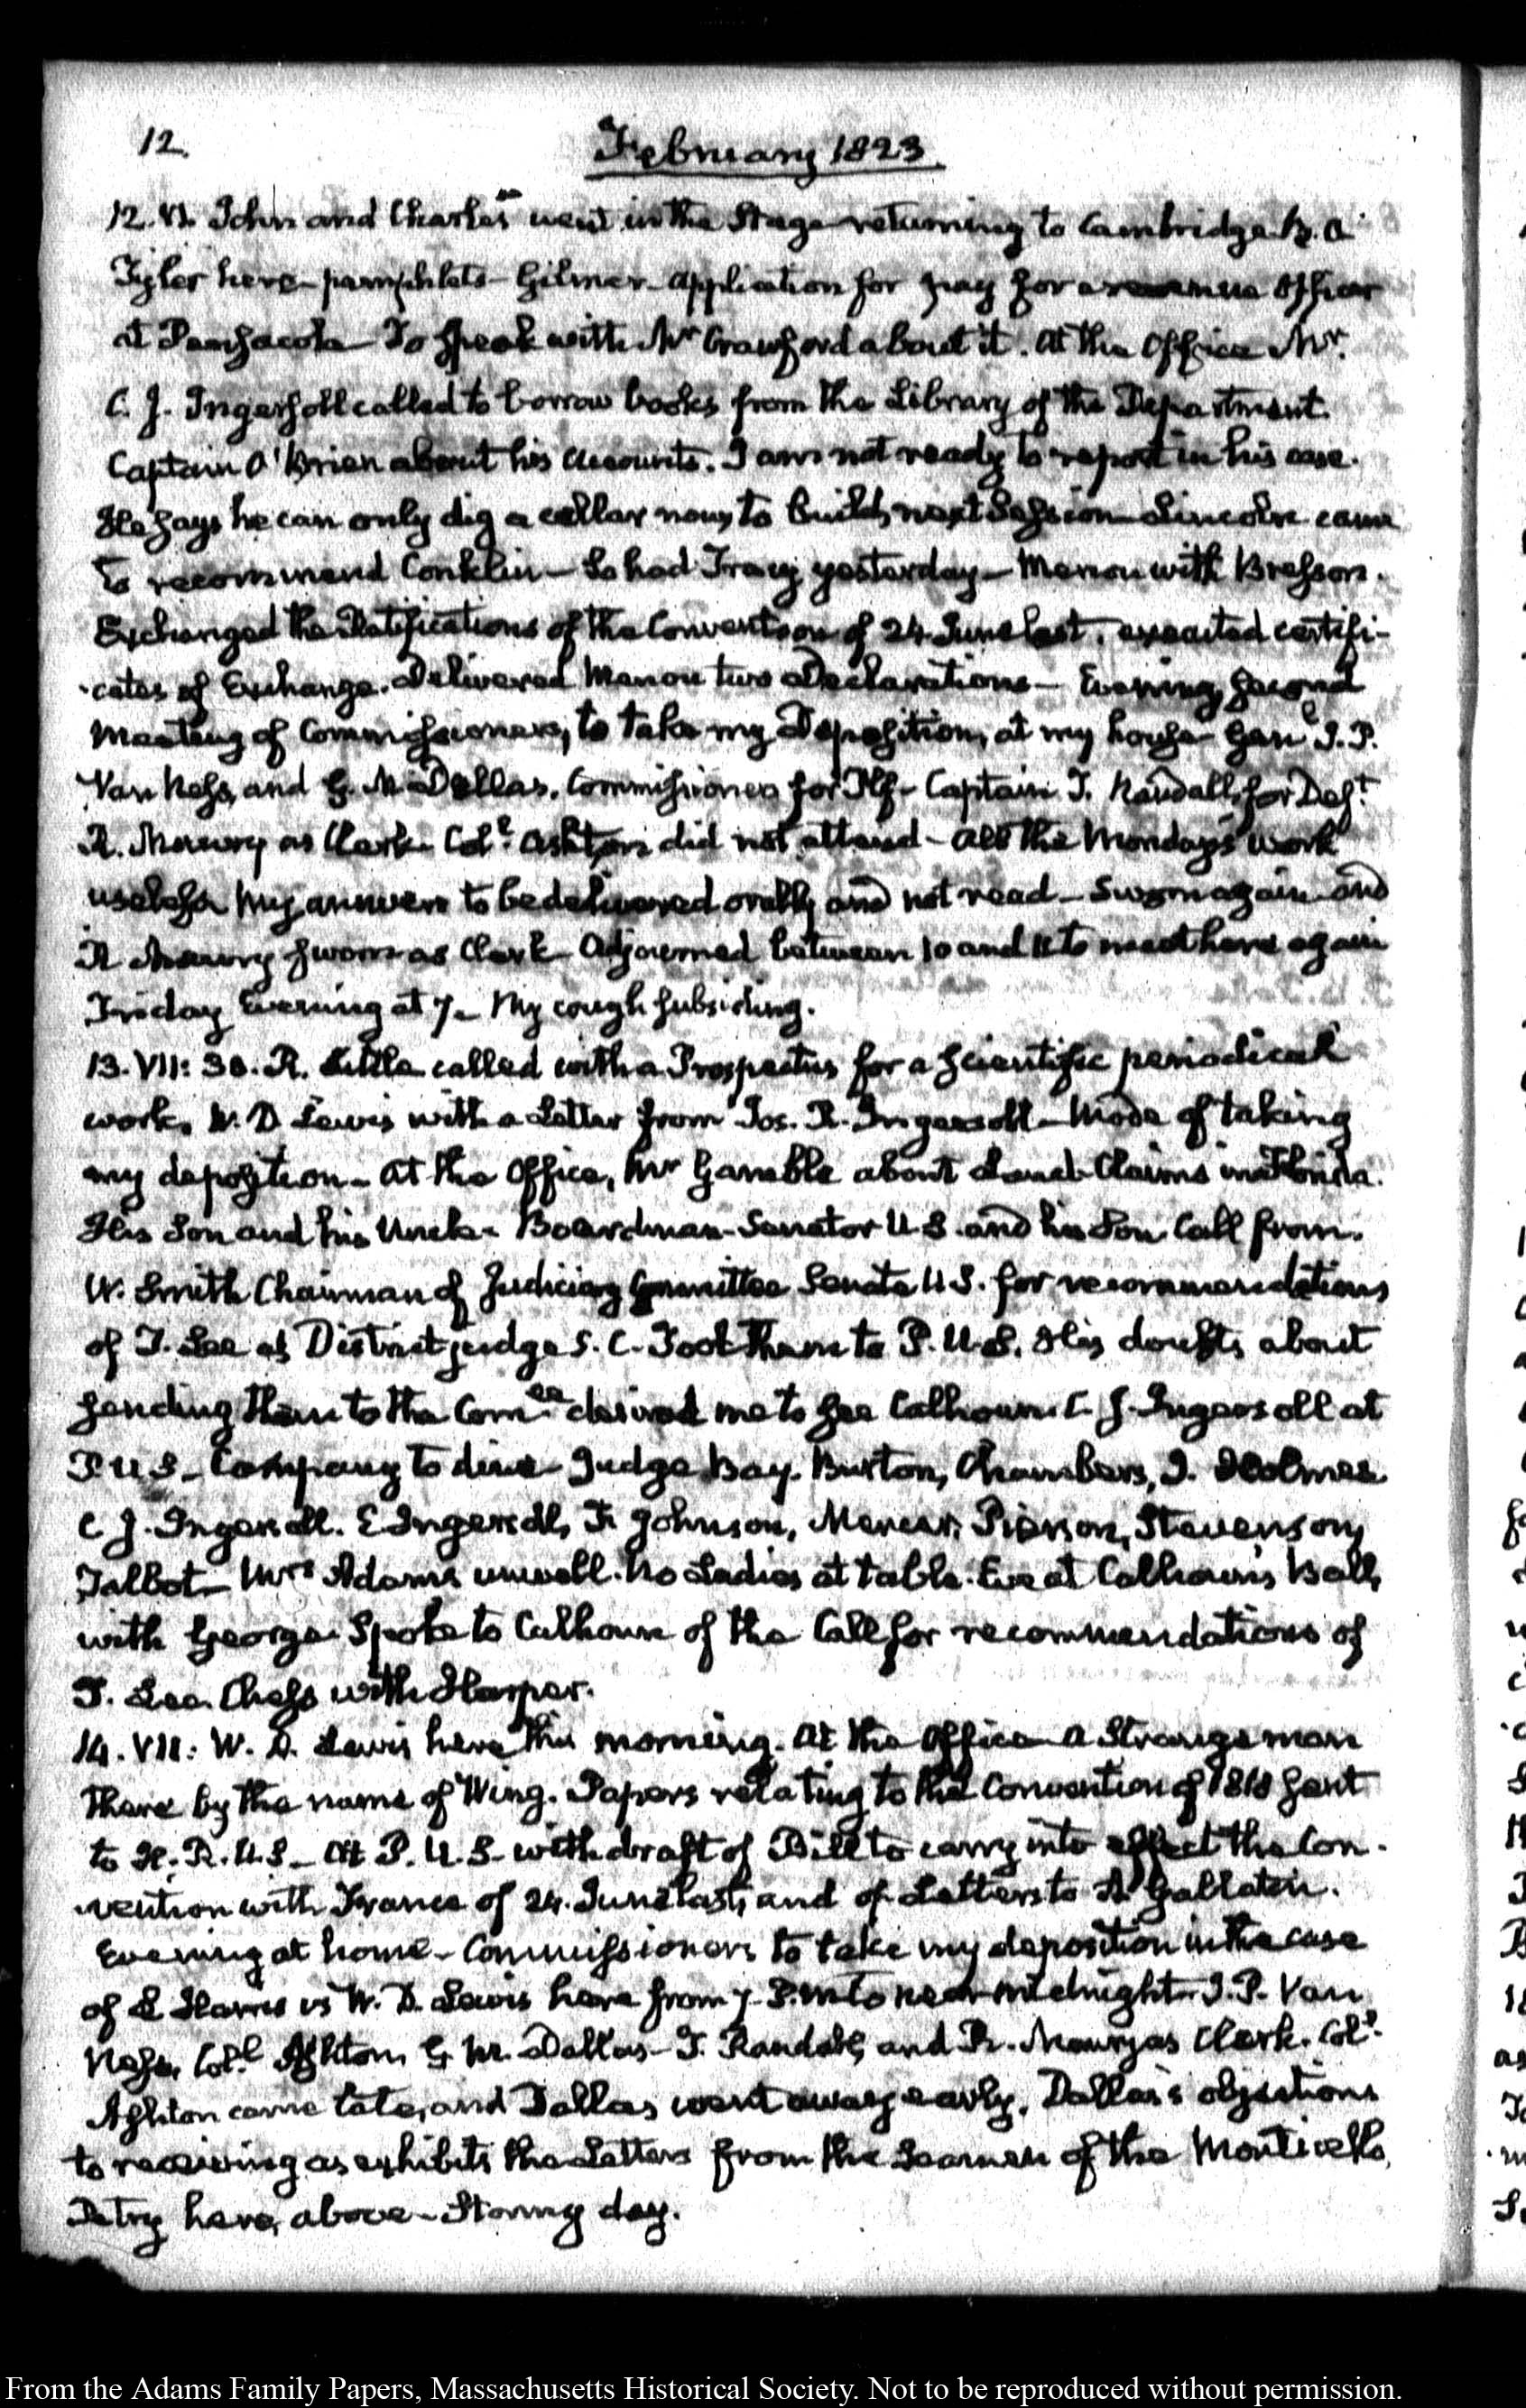 12.
February 1823.
12. VI. John and Charles went in the Stage returning to Cambridge. B. O
Tyler here - pamphlets - Gilmer - Application for pay for a revenue Officer
at Pensacola - To speak with Mr Crawford about it. At the Office Mr.
C. J. Ingersoll called to borrow books from the Library of the Department.
Captain O'Brien about his Accounts. I am not ready to report in his case.
He says he can only dig a cellar now, to build, next Session - Lincoln came
to recommend Conklin - So had Tracy yesterday - Menou with Bresson.
Exchanged the Ratifications of the Convention of 24 June last. executed certifi-
-cates of Exchange. Delivered Menou two Declarations - Evening, second
Meeting of Commissioners, to take my Deposition, at my house Genl J. P.
Van Ness, and G. M. Dallas, Commissioners for Plf - Captain T. Randall, for Deft
R. Maury as Clerk - Coll. Ashton did not attend - All the Monday's work
useless My answers to be delivered orally and not read - Sworn again and
R Maury sworn as Clerk - Adjourned between 10 and 11 to meet here again
Friday Evening at 7 - My cough subsiding.
13. VII: 30. R. Little called with a Prospectus for a scientific periodical
work. W. D Lewis with a Letter from Jos. R. Ingersoll - Mode of taking
my deposition - At the Office, Mr Gamble about Land Claims in Florida.
His Son and his Uncle - Boardman - Senator U.S. and his Son Call from
W. Smith Chairman of Judiciary Committee Senate U.S. for recommendations
of T. Lee as District judge S. C. Took them to P. U.S. His doubts about
sending them to the Comee desired me to see Calhoun C. J. Ingersoll at
P U S - Company to dine - Judge Bay. Burton, Chambers, J. Holmes
C J. Ingersoll. E Ingersoll, F. Johnson, Mercer, Pierson, Stevenson,
Talbot - Mrs Adams unwell. No Ladies at table. Eve at Calhoun's Ball,
with George. Spoke to Calhoun of the Call for recommendations of
T. Lee. Chess with Harper.
14. VII: W. D. Lewis here this morning. At the Office - A Strange man
there by the name of Wing. Papers relating to the Convention of 1818 sent
to H. R. U.S - At P. U.S - with draft of Bill to carry into effect the Con-
-vention with France of 24. June last, and of Letters to A Gallatin.
Evening at home - Commissioners to take my deposition in the case
of L Harris vs W. D. Lewis here from 7. P.M to near midnight - J. P. Van
Ness, Coll Ashton, G. M. Dallas - T. Randall, and R. Maury as Clerk. Coll.
Ashton came late, and Dallas went away early. Dallas's objections
to receiving as exhibits the Letters from the Seamen of the Monticello.
Petry here, above - Stormy day.
From the Adams Family Papers, Massachusetts Historical Society. Not to be reproduced without permission.